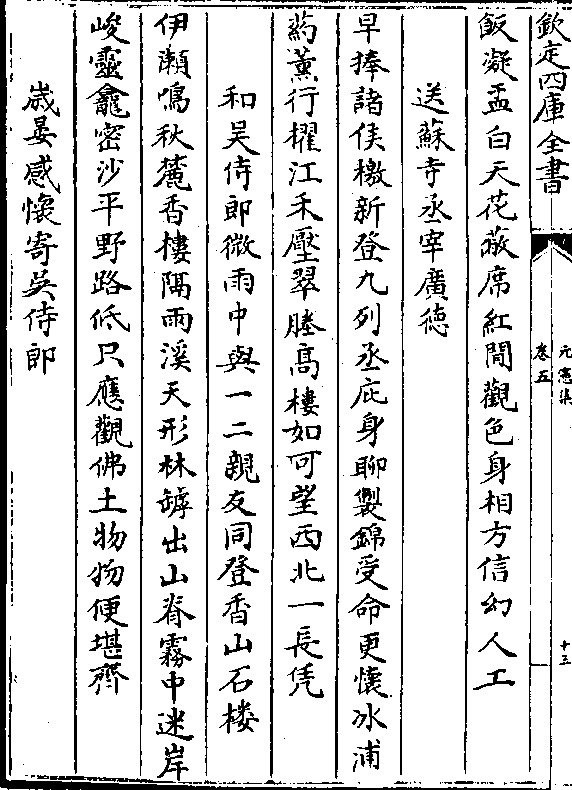 欽定四庫全書
元憲集
卷五
十三
飯凝盂白天花蔽席紅間觀色身相方信幻人工
送蘇寺丞宰廣徳
早捧諸侯檄新登九列丞庇身聊製錦受命更懐冰浦
葯薫行櫂江禾壓翠塍髙樓如可望西北一長凭
和吳侍郎微雨中與一二親友同登香山石楼
伊瀬鳴秋麓香樓隔雨溪天形林罅出山脊霧中迷岸
峻靈龕宻沙平野路低只應觀佛土物物便堪齊
歳晏感懐寄吳侍郎